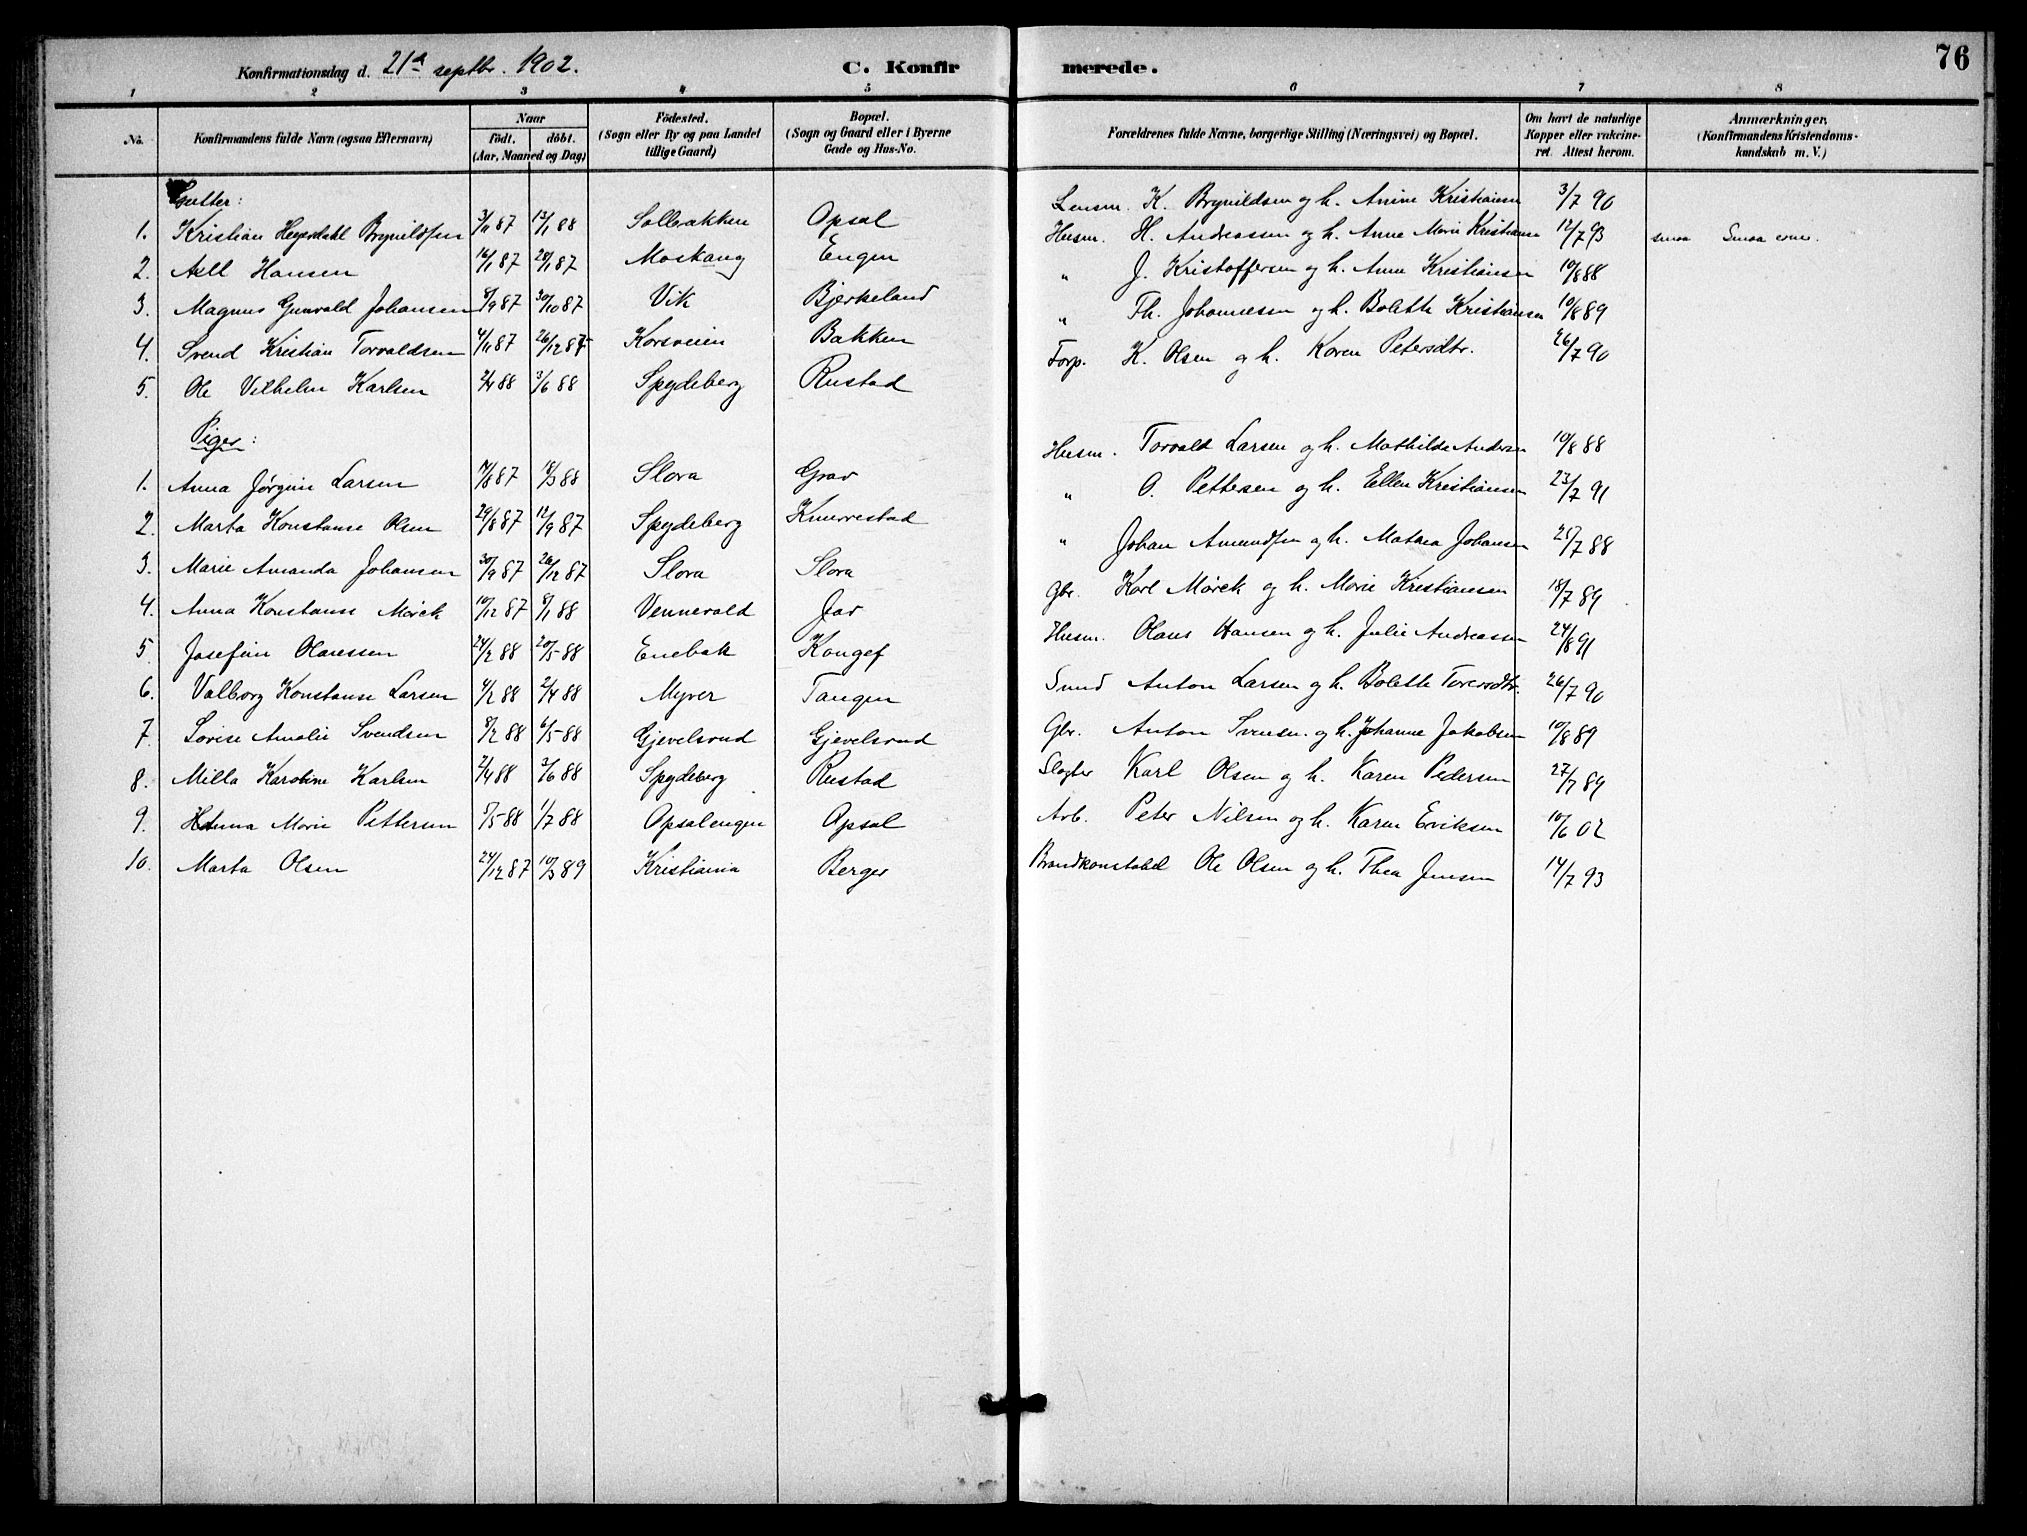 76
Konfirmationsdag d. 21de septbr. 1902. C. Konfir merede.
1 2 3 4 5 6 7 8
No. Konfirmandens fulde Navn (ogsaa Efternavn) Naar födt. döbt. (Aar, Maaned og Dag) Födested. (Sogn eller By og paa Landet tillige Gaard) Bopæl. (Sogn og Gaard eller i Byerne Gade og Hus-No. Forældrenes fulde Navne, borgerlige Stilling (Næringsvei) og Bopæl. Om havt de naturlige Kopper eller vakcineret. Attest herom. Anmærkninger, (Konfirmandens Kristendomskundskab m. V.)
Gutter:
1. Kristian Heyerdahl Brynildsen 3/11 87 13/1 88 Solbakken Opsal Lensm. K. Brynildsen og h. Anine Kristiansen 3/7 90
2. Axel Hansen 16/1 87 28/1 87 Moskaug Engen Husm. H. Andreassen og h. Anne Marie Kristiansen 12/7 93 smaa Smaa evner.
3. Magnus Gunvald Johansen 8/9 87 30/10 87 Vik Bjerkeland " J. Kristoffersen og h. Anne Kristiansen 10/8 88
4. Svend Kristian Torvaldsen 4/11 87 26/12 87 Korsveien Bakken " Th. Johannesen og h. Bolette Kristiansen 10/8 89
5. Ole Vilhelm Karlsen 2/4 88 3/6 88 Spydeberg Rustad Forp. K. Olsen og h. Karen Petersdtr. 26/7 90
Piger:
1. Anna Jørgine Larsen 14/8 87 18/3 88 Slora Grav Husm. Torvald Larsen og h. Mathilde Andersen 10/8 88
2. Marta Konstanse Olsen 29/8 87 12/9 87 Spydeberg Knerrestad " O. Pettersen og h. Ellen Kristiansen 23/7 91
3. Marie Amanda Johansen 30/9 87 26/12 87 Slora Slora " Johan Amundsen og h. Matea Johansen 25/7 88
4. Anna Konstanse Mørck 10/12 87 8/1 88 Vennevald Jar Gbr. Karl Mørck og h. Marie Kristiansen 18/7 89
5. Josefine Olaussen 24/2 88 20/5 88 Enebak Kongef Husm. Olaus Hansen og h. Julie Andreassen 24/8 91
6. Valborg Konstanse Larsen 4/2 88 2/4 88 Myrer Tangen Smed Anton Larsen og h. Bolette Toversdtr. 26/7 90
7. Lovise Amalie Svendsen 8/2 88 6/5 88 Gjevelsrud Gjevelsrud Gbr. Anton Svensen og h. Johanne Jakobsen 10/8 89
8. Milla Karoline Karlsen 2/4 88 3/6 88 Spydeberg Rustad Slagter Karl Olsen og h. Karen Pedersen 27/7 89
9. Hanna Marie Pettersen 5/5 88 1/7 88 Opsalengen Opsal Arb. Peter Nilsen og h. Karen Eriksen 10/6 02
10. Marta Olsen 24/12 87 10/3 89 Kristiania Berger Brandkonstabel Ole Olsen og h. Thea Jensen 14/7 93